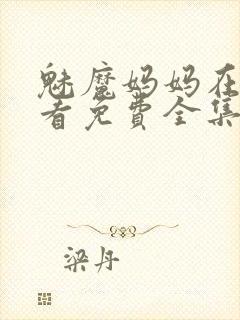 魅魔妈妈在
看免费全集
梁丹